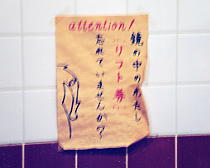 attention!
鏡の中のわたし
"リフト券"
忘れていませんか?